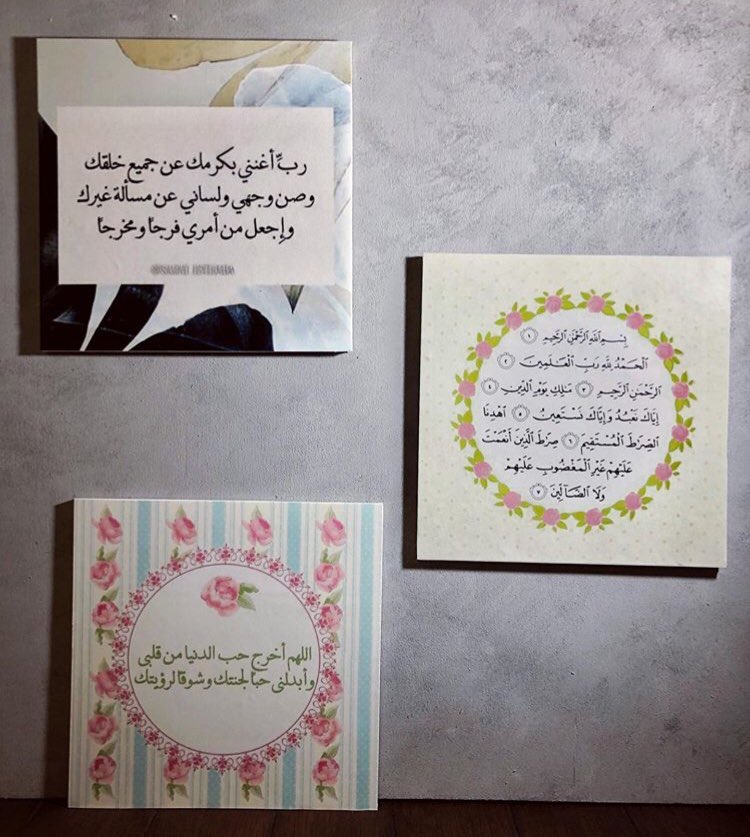 ربِّ أغنني بكرمك عن جميع خلقك
وصن وجهي ولساني عن مسألة غيرك
وإجعل من أمري فرجاً ومخرجاً
بِسْمِ ٱللَّهِ ٱلرَّحْمَٰنِ ٱلرَّحِيمِ ١
ٱلْحَمْدُ لِلَّهِ رَبِّ ٱلْعَٰلَمِينَ ٢
ٱلرَّحْمَٰنِ ٱلرَّحِيمِ ٣ مَٰلِكِ يَوْمِ ٱلدِّينِ ٤
إِيَّاكَ نَعْبُدُ وَإِيَّاكَ نَسْتَعِينُ ٥ ٱهْدِنَا
ٱلصِّرَٰطَ ٱلْمُسْتَقِيمَ ٦ صِرَٰطَ ٱلَّذِينَ أَنْعَمْتَ
عَلَيْهِمْ غَيْرِ ٱلْمَغْضُوبِ عَلَيْهِمْ
وَلَا ٱلضَّآلِّينَ ٧
اللهم أخرج حب الدنيا من قلبي
وأبدلني حباً لجنتك وشوقاً لرؤيتك